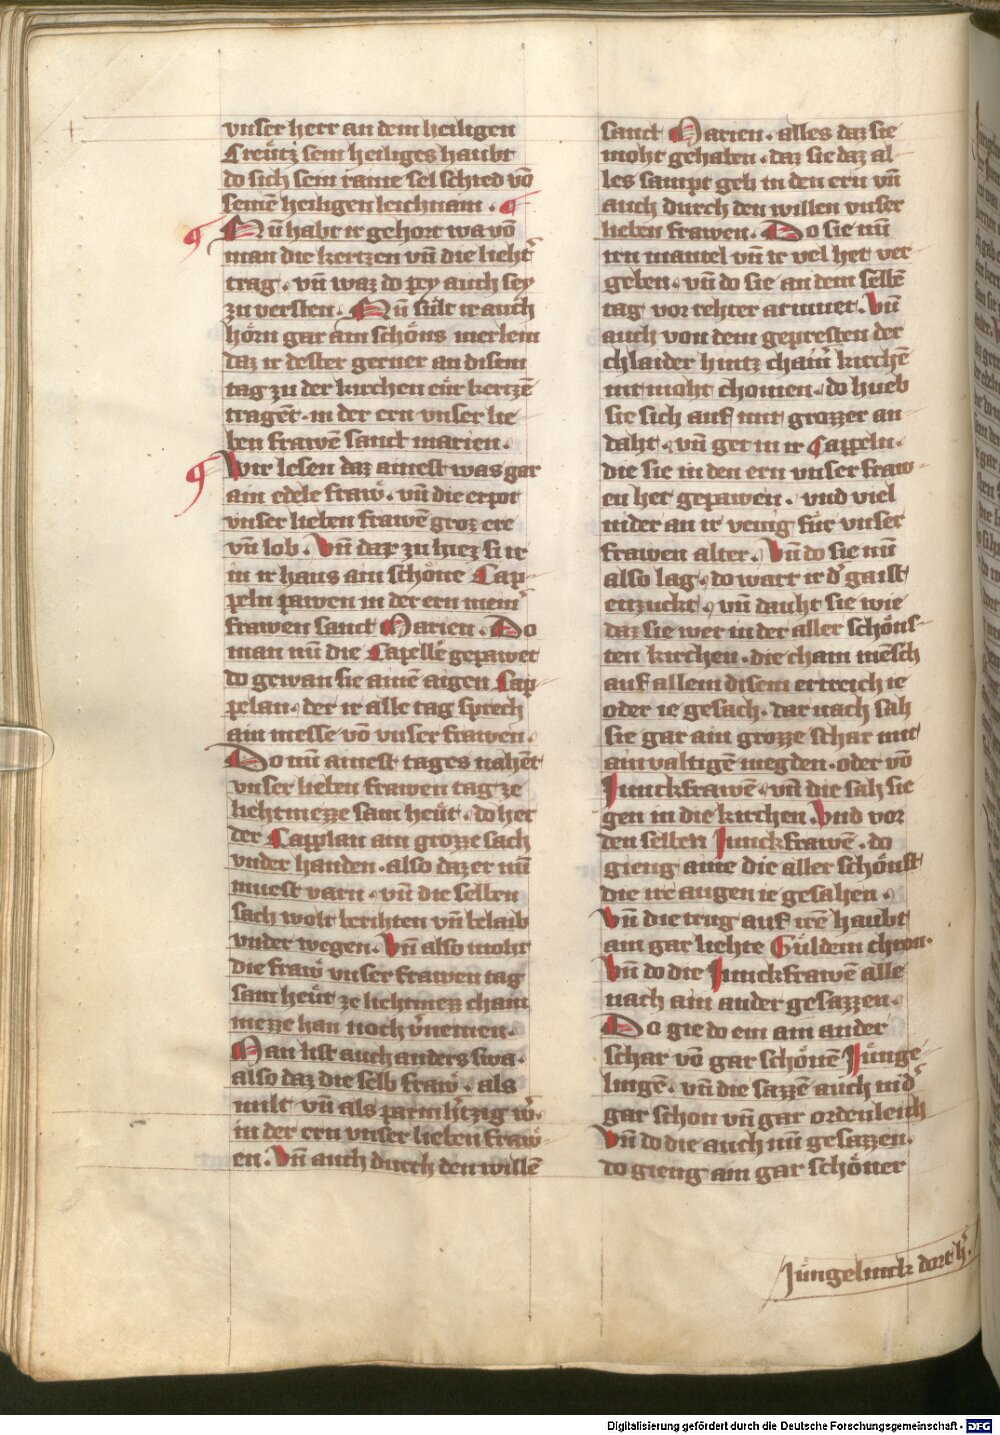 vnser herr an dem heiligen
Creutz sein heiliges haubt
do sich sein raine sel schied võ
seinẽ heiligen leichnam .
Nũ habt ir gehort wa võ
man die kertzen vñ die liecht
trag . vñ waz do pey auch sey
zu versten . Nũ sült ir auch
hörn gar ain schöns merlein
daz ir dester gerner an disem
tag zu der kirchen eür kertzẽ
tragẽt . in der ern vnser lie
ben frawẽ sanct marien .
Wir lesen daz ainest was gar
ain edele fraw . vñ die erpot
vnser lieben frawẽ groz ere
vñ lob . Vñ dar zu hiez si ir
in ir haus ain schöne Cap-
peln pawen in der ern mein
frawen sanct Marien . Do
man nũ die Capellẽ gepawet
do gewan sie ainẽ aigen Cap-
pelan . der ir alle tag sprech
ain messe võ vnser frawen .
Do nũ ainest tages nahẽt
vnser lieben frawen tag ze
liechtmezze sam heüt . do het
der Capplan ain grozze sach
vnder handen . also daz er nũ
muest varn . vñ die selben
sach wolt berihten vñ belaib
vnder wegen . Vñ also moht
die fraw vnser frawen tag
sam heüt ze liechtmezz chain
mezze han noch v̓nemen .
Man list auch anders swa .
also daz die selb fraw . als
milt vñ als parmh̓tzig w̓.
in der ern vnser lieben fraw-
en . Vñ auch durch den willẽ
sanct Marien . alles daz sie
moht gehaben . daz sie daz al-
les sampt geb in den ern vñ
auch durch den willen vnser
lieben frawen . Do sie nũ
irn mantel vñ ir vel het ver
geben . vñ do sie an dem selbẽ
tag vor rehter armuet . Vñ
auch von dem gepresten der
chlaider hintz chainr̓ kirchẽ
nit moht chomen . do hueb
sie sich auf mit grozzer an-
daht . vñ get in ir Cappeln .
die sie in den ern vnser fraw-
en het gepawen . vnd viel
nider an ir venig für vnser
frawen alter . Vñ do sie nũ
also lag . do wart ir d̓ gaist
enzuckt . vñ dauht sie wie
daz sie wer in der aller schöns-
ten kirchen . die cham mẽsch
auf allem disem ertreich ie
oder ie gesach . dar nach sah
sie gar ain grozze schar mit
ainvaltigẽ megden . oder võ
Junckfrawẽ . vñ die sah sie
gen in die kirchen . Vnd vor
den selben Junckfrawẽ . do
gieng aine die aller schönst
die ire augen ie gesahen .
Vñ die trug auf irẽ haubt
ain gar liehte Güldein chron .
Vñ do die Junckfrawẽ alle
nach ain ander gesazzen .
Do gie do ein ain ander
schar võ gar schönẽ Jünge-
lingẽ . vñ die sazzẽ auch nid̓
gar schon vñ gar ordenleich
Vñ do die auch nũ gesazzen .
do gieng ain gar schöner
Jüngelinck dort h̓.
Digitalisierung gefördert durch die Deutsche Forschungsgemeinschaft - DFG